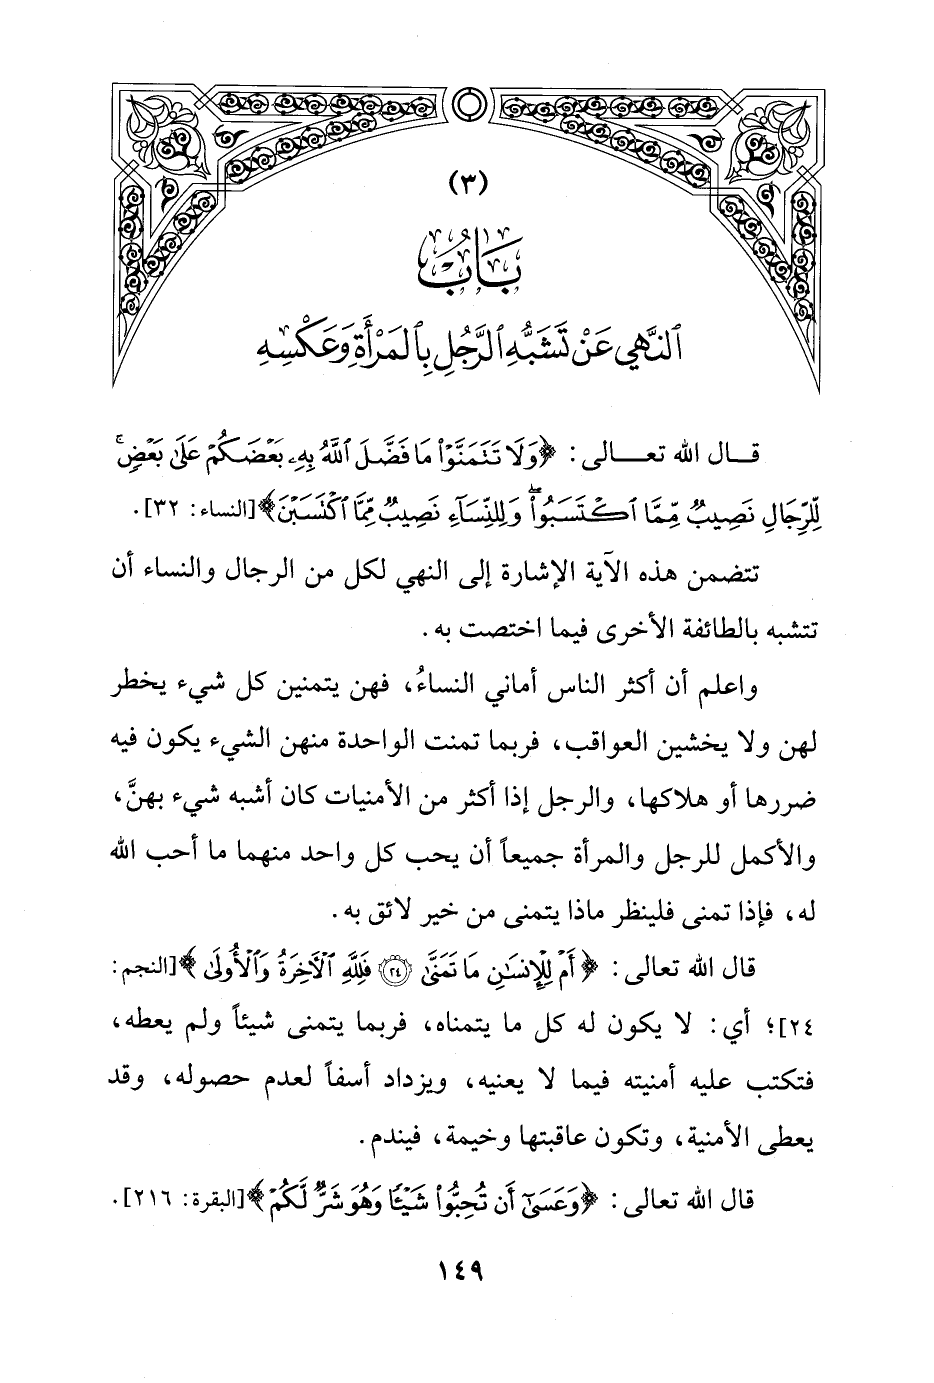 (٣)
بَابُ
النَّهْيِ عَنْ تَشَبُّهِ الرَّجُلِ بِالمَرْأَةِ وَعَكْسِهِ
قـــال الله تعـــالى: ﴿وَلَا تَتَمَنَّوْا۟ مَا فَضَّلَ ٱللَّهُ بِهِۦ بَعْضَكُمْ عَلَىٰ بَعْضٍ ۚ
لِّلرِّجَالِ نَصِيبٌ مِّمَّا ٱكْتَسَبُوا۟ ۖ وَلِلنِّسَآءِ نَصِيبٌ مِّمَّا ٱكْتَسَبْنَ﴾ [النساء: ٣٢].
تتضمن هذه الآية الإشارة إلى النهي لكل من الرجال والنساء أن
تتشبه بالطائفة الأخرى فيما اختصت به.
واعلم أن أكثر الناس أماني النساءُ، فهن يتمنين كل شيء يخطر
لهن ولا يخشين العواقب، فربما تمنت الواحدة منهن الشيء يكون فيه
ضررها أو هلاكها، والرجل إذا أكثر من الأمنيات كان أشبه شيء بهنَّ،
والأكمل للرجل والمرأة جميعاً أن يحب كل واحد منهما ما أحب الله
له، فإذا تمنى فلينظر ماذا يتمنى من خير لائق به.
قال الله تعالى: ﴿أَمْ لِلْإِنسَٰنِ مَا تَمَنَّىٰ ٢٤ فَلِلَّهِ ٱلْآخِرَةُ وَٱلْأُولَىٰ﴾ [النجم:
٢٤]؛ أي: لا يكون له كل ما يتمناه، فربما يتمنى شيئاً ولم يعطه،
فتكتب عليه أمنيته فيما لا يعنيه، ويزداد أسفاً لعدم حصوله، وقد
يعطى الأمنية، وتكون عاقبتها وخيمة، فيندم.
قال الله تعالى: ﴿وَعَسَىٰٓ أَن تُحِبُّوا۟ شَيْـًٔا وَهُوَ شَرٌّ لَّكُمْ﴾ [البقرة: ٢١٦].
١٤٩